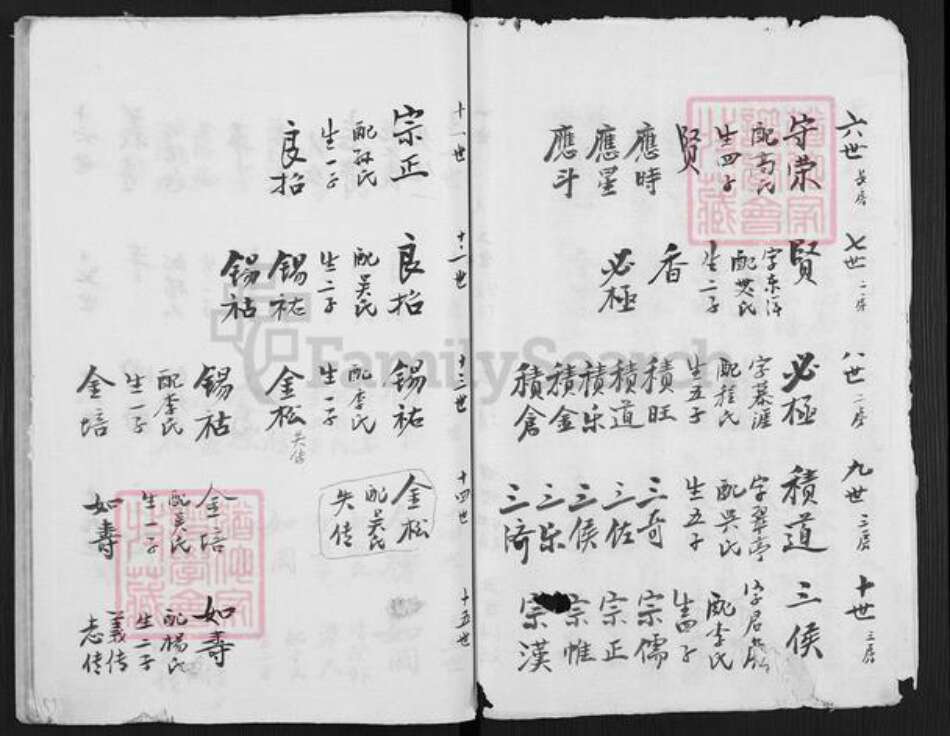 六世 长房
守荣
配高氏
生四子
賢
應時
應星
應斗
七世 二房
賢
字东洋
配樊氏
生二子
香
必極
八世 二房
必極
字慕涯
配程氏
生五子
積旺
積道
積乐
積金
積倉
九世 三房
積道
字翠亭
配吳氏
生五子
三奇
三佐
三侯
三乐
三倚
十世 三房
三侯
配李氏
生四子
宗儒
宗正
宗惟
宗漢
十一世
宗正
配孙氏
生一子
良抬
十二世
良抬
配吴氏
生二子
錫祐
錫祜
十三世
錫祐
配李氏
生一子
金松 失传
錫祜
配李氏
生一子
金培
十四世
金松
配吴氏
失传
金培
配吴氏
生一子
如壽
十五世
如壽
配楊氏
生二子
義传
志传
FamilySearch